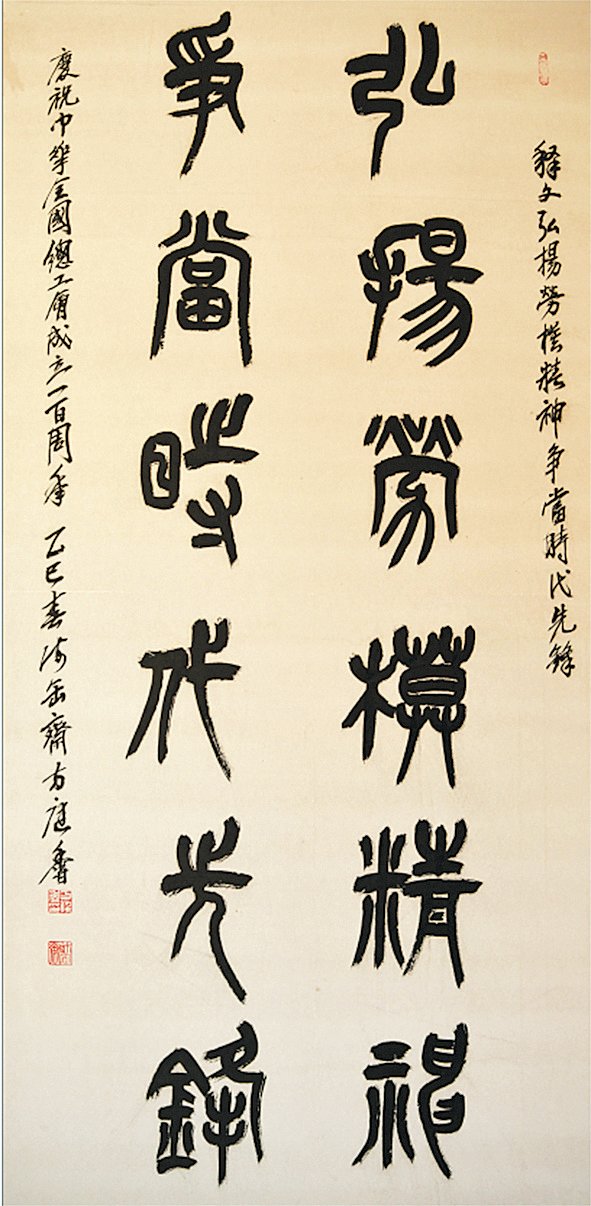 释文弘揚勞模精神争當時代先鋒
弘揚勞模精神
爭當時代先鋒
慶祝中華全國總工會成立一百周年 乙巳春 缶齋方建